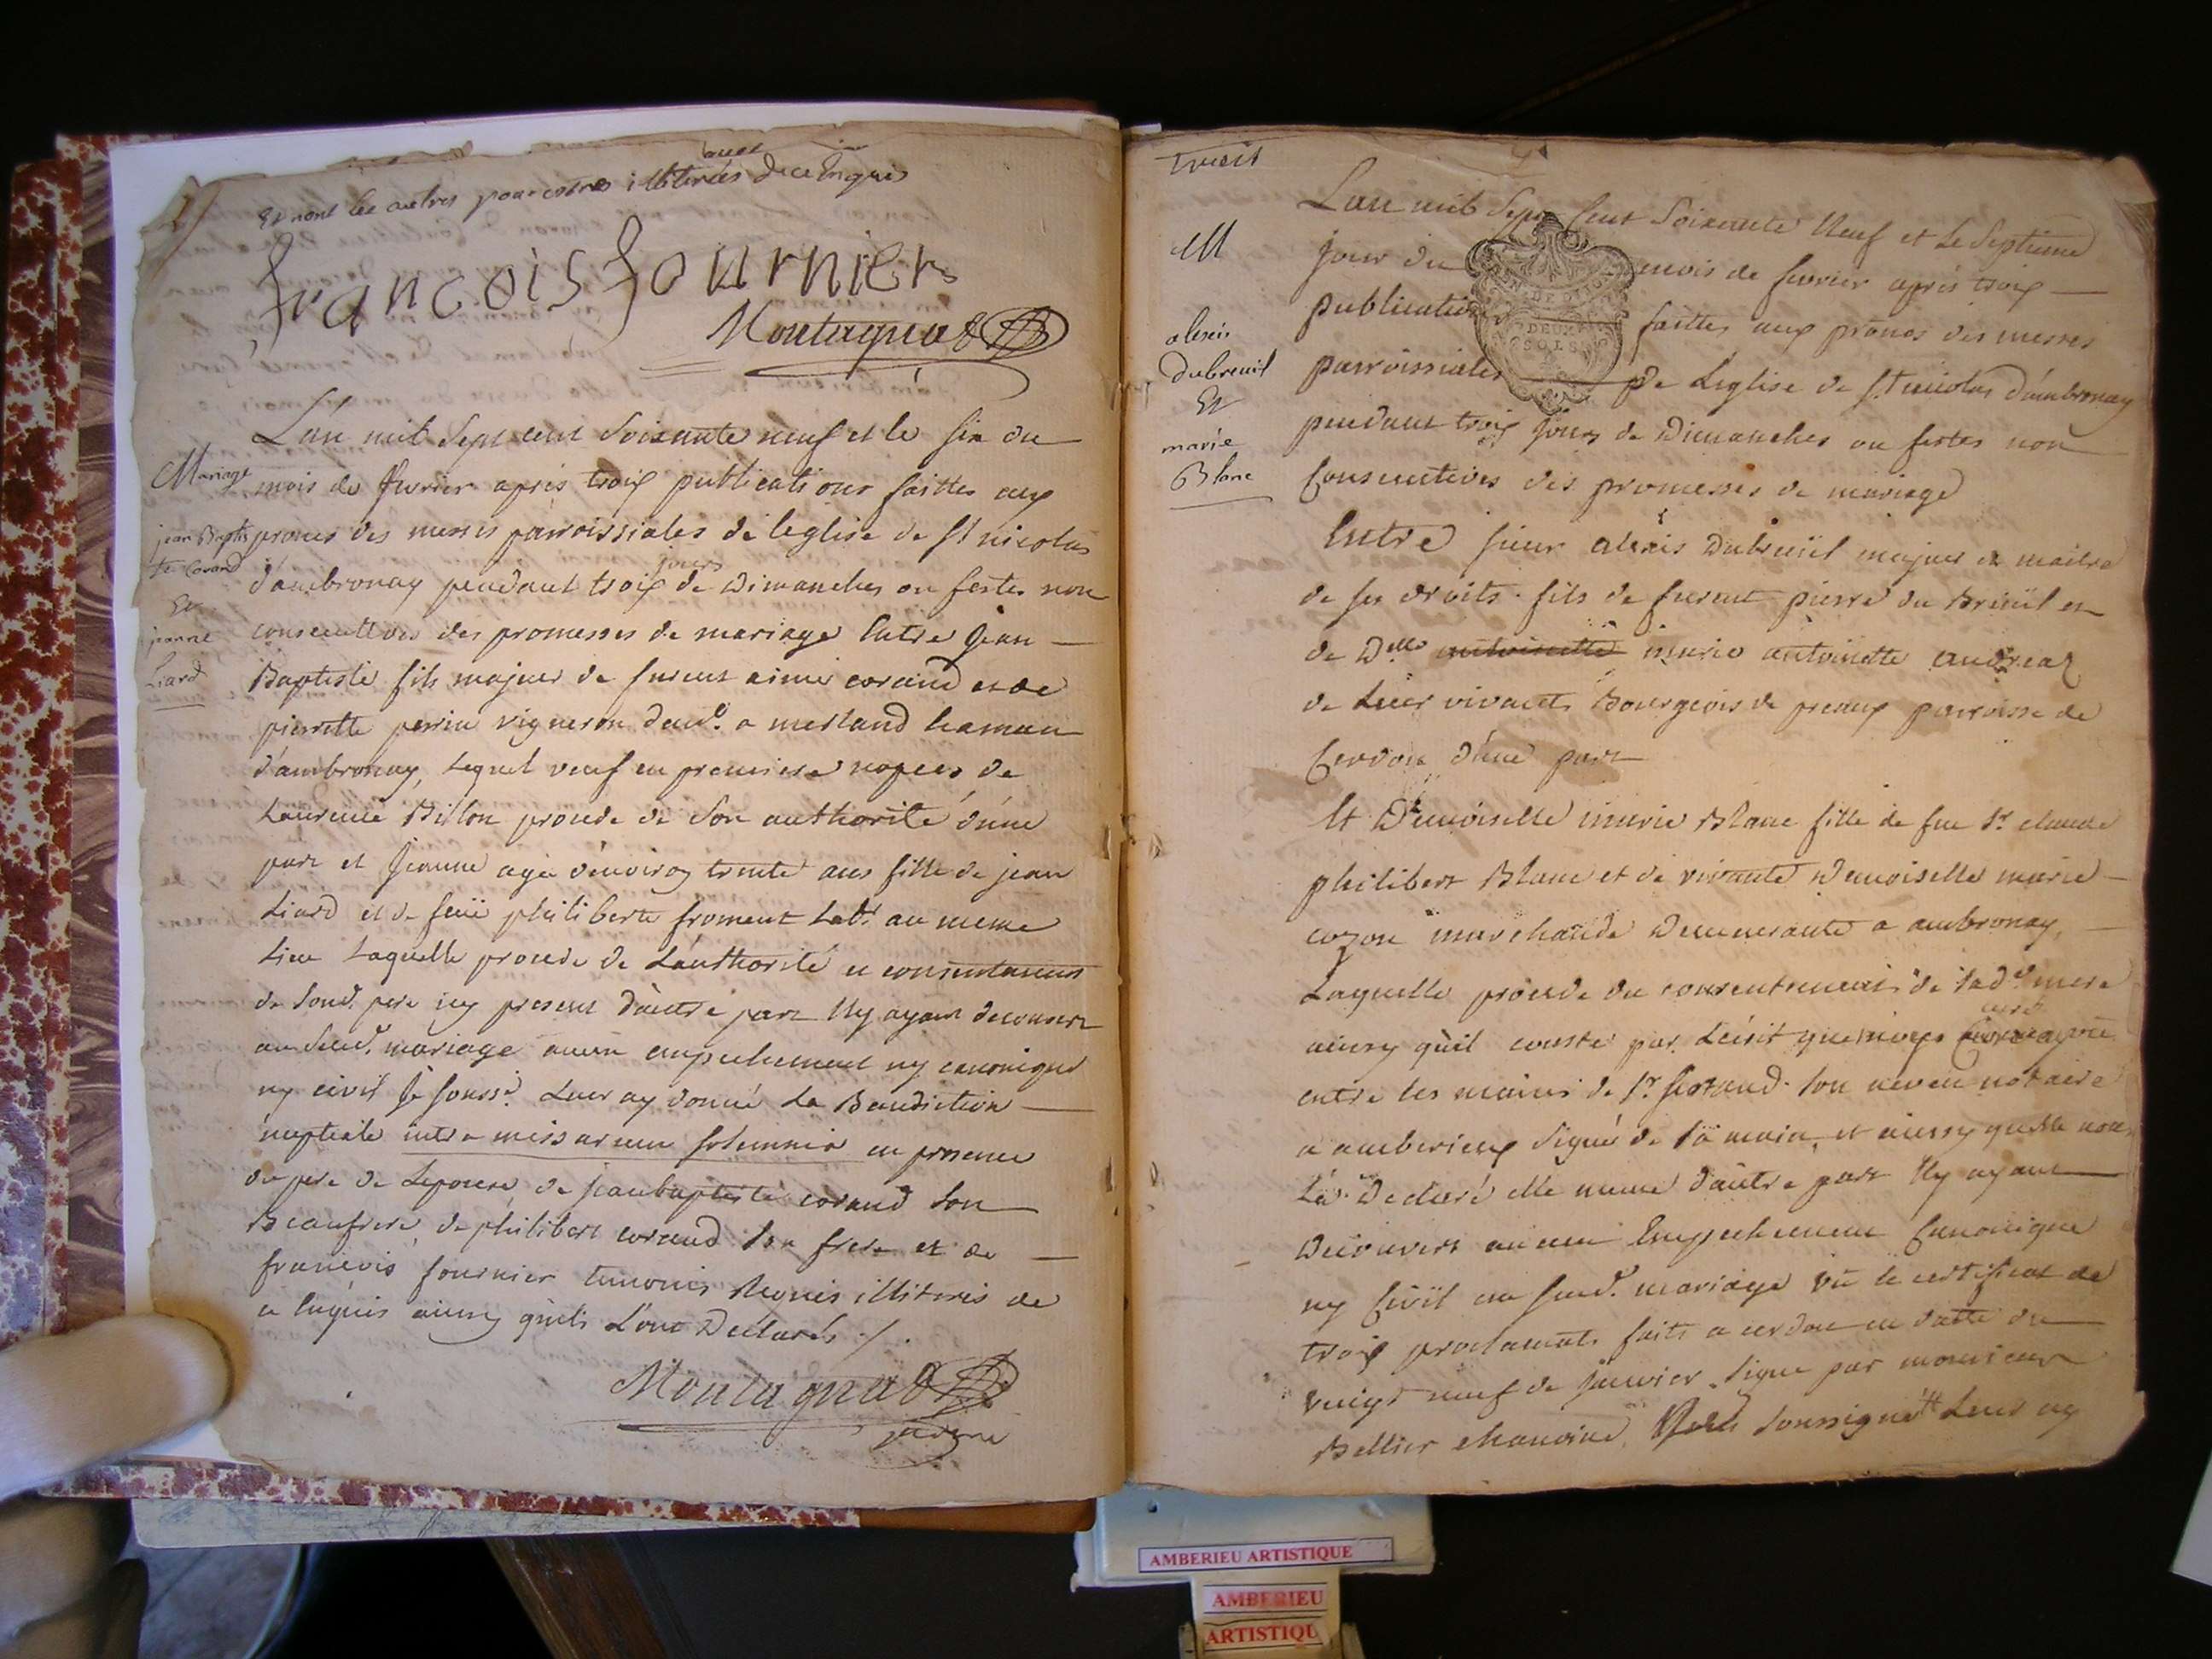 Et non les autres pour estres illiterés de ce Enquis
francois fournier
Montagnat
L'an mil Sept cent Soixante neuf et le six du
Mariage
mois de fevrier après trois publications faittes aux
jean Baptis
te Corand
Et
jeanne
Liard
prones des messes parroissiales de l'eglise de St nicolas
d'ambronay pendant trois jours de Dimanches ou festes non
consecutives des promesses de mariage Entre Jean
Baptiste fils majeur de furent aimé corand et de
pierrette perrin vigneron a merland hameau
d'ambronay, Lequel veuf en premiere nopces de
Laurence Billon procede de Son authorité d'une
part et Jeanne agée d'environ trente ans fille de jean
Liard et de feüe philiberte froment habt. au meme
Lieu Laquelle procede de L'authorité et consentement
de Soud. pere icy present d'autre part N'y ayant decouvert
au Sud. mariage aucun empechement ny canonique
ny civil Je Souss.é Leur ay donné La Benediction
nuptiale intra missarum solemnia en presence
du pere de Lepouse de jeanbaptiste corand Son
Beaufrere, de philibert corand Son frere et de
francois fournier temoins Requis illiterés de
ce Enquis ainsy qu'ils L'ont Declarés ./.
Montagnat
trois
M
alexis
dubreuil
Et
marie
Blanc
L'an mil Sept Cent Soixante Neuf et Le Septieme
jour du mois de fevrier après trois
publications faittes aux prones des messes
parroissiales de L'eglise de St nicolas d'ambronay
pendant trois jours de Dimanches ou festes non
Consecutives des promesses de mariage
GEN. DE DIJON
DEUX
SOLS
Entre sieur alexis Dubreüil majeur et maitre
de ses droits fils de furent pierre du Breüil et
de Delle antoinette marie antoinette andreaz
de Leur vivants Bourgeois de preaux parroisse de
Cerdon d'une part
Et Demoiselle marie Blanc fille de feu Sr claude
philibert Blanc et de vivante Demoiselle marie
cozon marchande Demeurante a ambronay,
Laquelle procede du consentement de Lad.e mere
ainsy qu'il conste par L'écrit que
entre les mains de Sr. Son neveu notaire
a amberieux Signé de Sa main, et ainsy quelle nous
L'a Declaré elle meme d'autre part N'y ayant
Decouvert aucun Empechement Canonique
ny Civil au Sud. mariage vû le certificat de
trois proclamats faits a cerdon en datte du
vingt neuf de janvier Signé par monsieur
Bellier chanoine, soussigné Leur ay
AMBERIEU ARTISTIQUE
AMBERIEU
ARTISTIQU